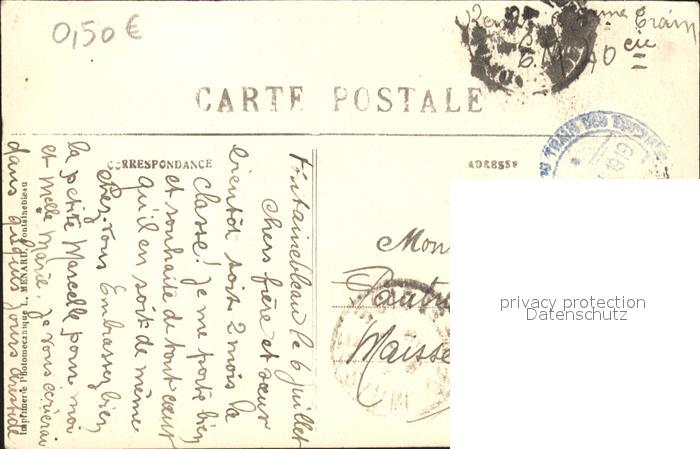 0,50 €
Train
CARTE POSTALE
CORRESPONDANCE
ADRESSE
Fontainebleau le 6 juillet
Chers frère et sœur
bientôt soit 2 mois la
classe! Je me porte bien
et souhaite de tout cœur
qu'il en soit de même
chez-vous Embrassez bien
la petite Marcelle pour moi
et Melle Marie. Je vous écrirai
dans quelques jours
Imprimerie Photomécanique L. MENARD, Fontainebleau
TRAIN DES
1919
Mon
Maisse
privacy protection
Datenschutz